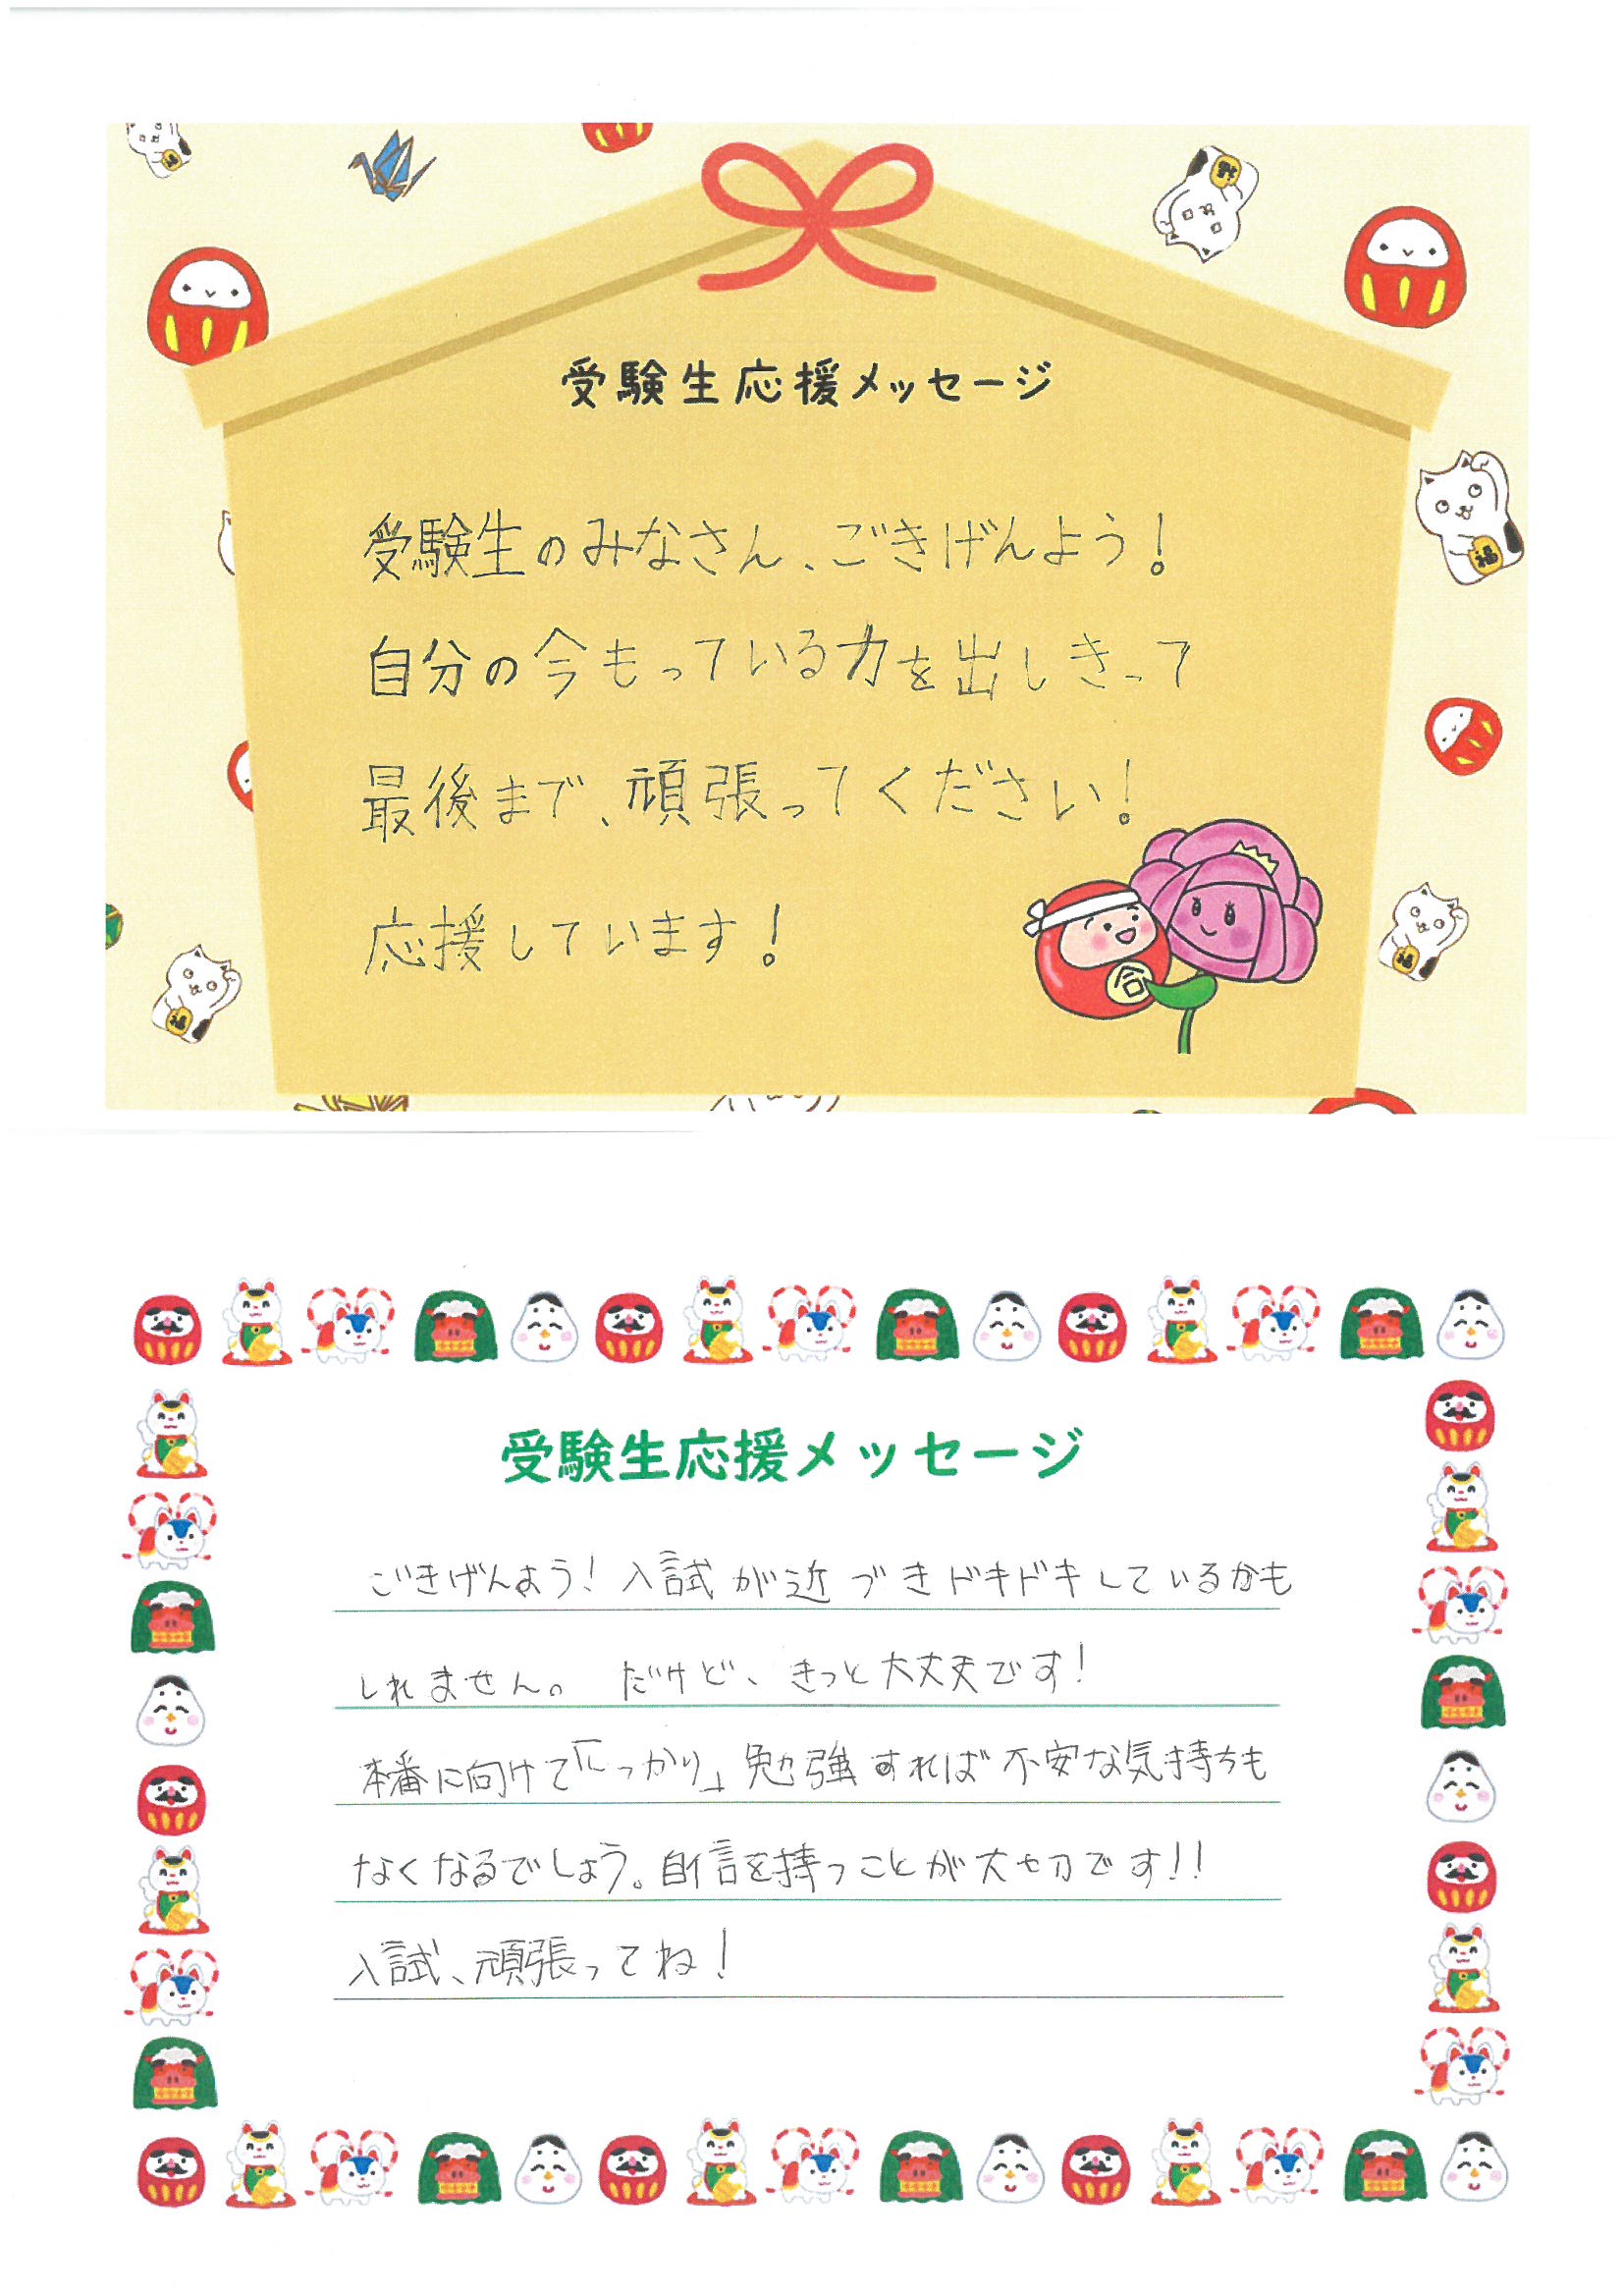 受験生応援メッセージ
受験生のみなさん、ごきげんよう！
自分の今もっている力を出しきって
最後まで、頑張ってください！
応援しています！
合
受験生応援メッセージ
ごきげんよう！入試が近づきドキドキしているかも
しれません。だけど、きっと大丈夫です！
本番に向けて「しっかり」勉強すれば不安な気持ちも
なくなるでしょう。自信を持つことが大切です！！
入試、頑張ってね！